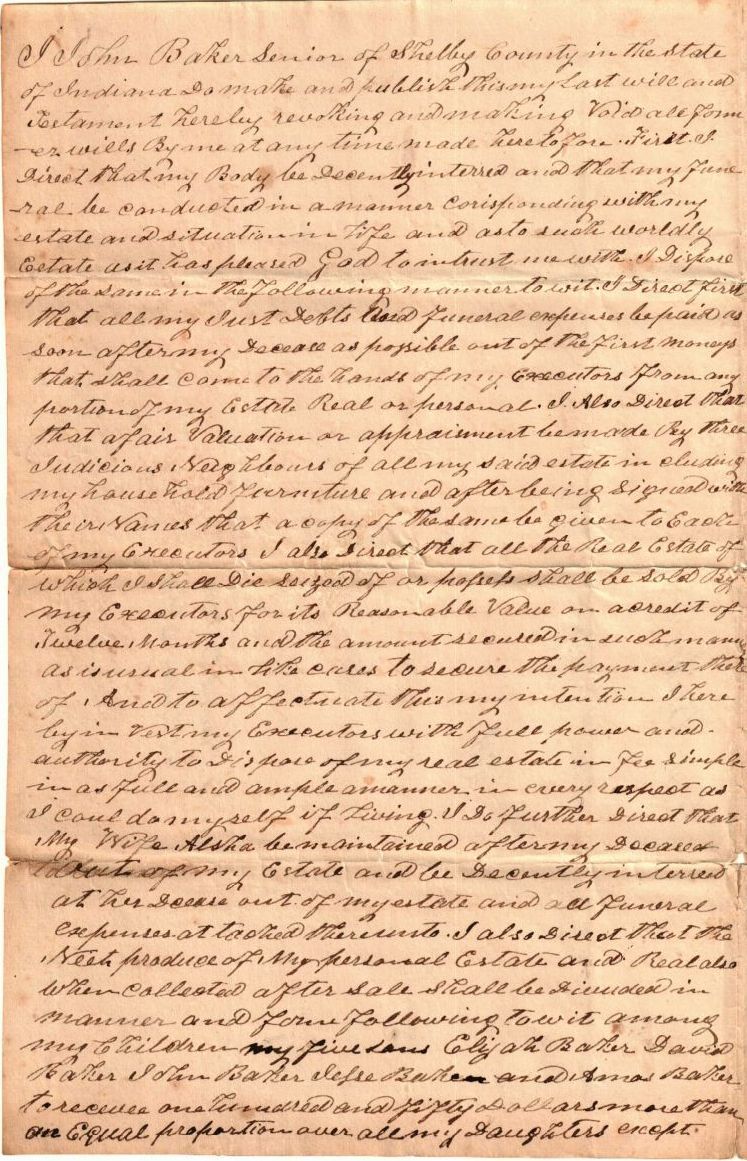 I John Baker Senior of Shelby County in the State
of Indiana Do make and publish this my Last will and
Testament hereby revoking and making Void all form
-er wills By me at any time made heretofore. First I
Direct that my Body be Decently interred and that my fune
-ral be conducted in a manner corisponding with my
estate and situation in life and as to such worldly
Estate as it has pleased God to intrust me with. I Dispose
of the same in the following manner to wit. I Direct first
that all my Just Debts and funeral expenses be paid as
soon after my Decease as possible out of the first moneys
that shall come to the hands of my Executors from any
portion of my Estate Real or personal. I Also Direct that
that a fair Valuation or appraisment be made By three
Judicious Neighbours of all my said estate in cluding
my household furniture and after being Signed with
their Names that a copy of the same be given to Each
of my Executors I also Direct that all the Real Estate of
which I Shall Die seized of or possess shall be sold By
my Executors for its Reasonable Value on a credit of
Twelve Months and the amount secured in such mann
as is usual in like cases to secure the payment there
of. And to affectuate this my intention I here
by in Vest my Executors with full power and
authority to Dispose of my real estate in fee simple
in as full and ample a manner in every respect as
I coul do myself if living. I Do further Direct that
My Wife Alsha be maintained after my Decease
out of my Estate and be Decently interred
at her Dcease out of my estate and all funeral
expenses at tached thereunto. I also Direct that the
Neet produce of My personal Estate and Real also
when collected after sale shall be Divided in
manner and form following to wit among
my Children my five sons Elijah Baker David
Baker John Baker Jesse Baker and Amos Baker
to receve one hundred and fifty Dollars more than
an Equal proportion over all my Daughters except